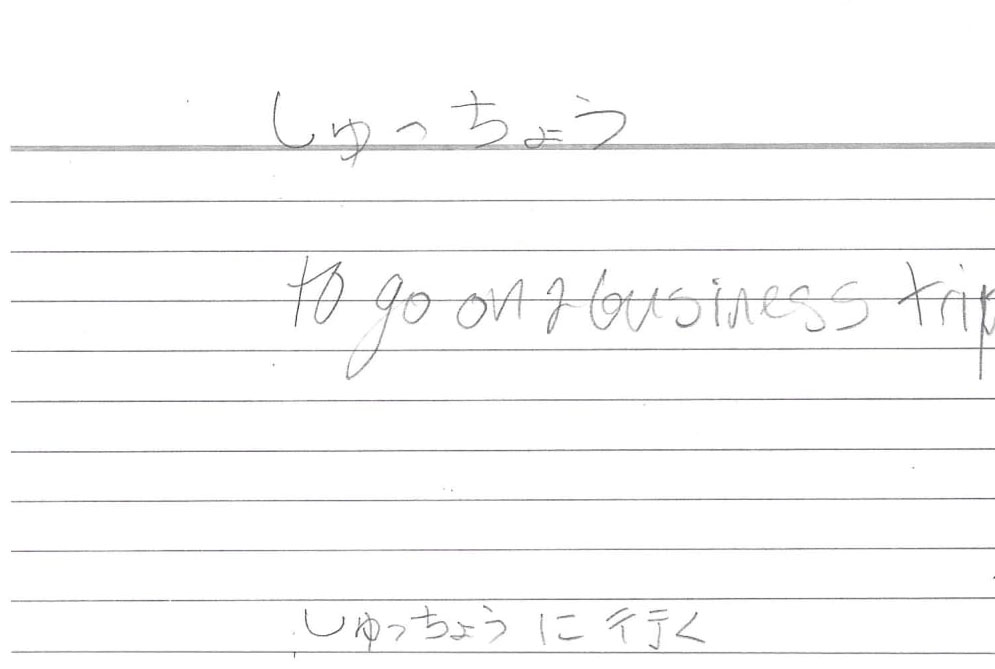 しゅっちょう
to go on a business trip
しゅっちょうに行く